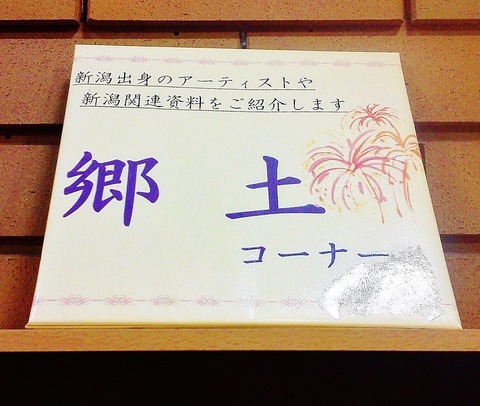 新潟出身のアーティストや
新潟関連資料をご紹介します
郷土
コーナー